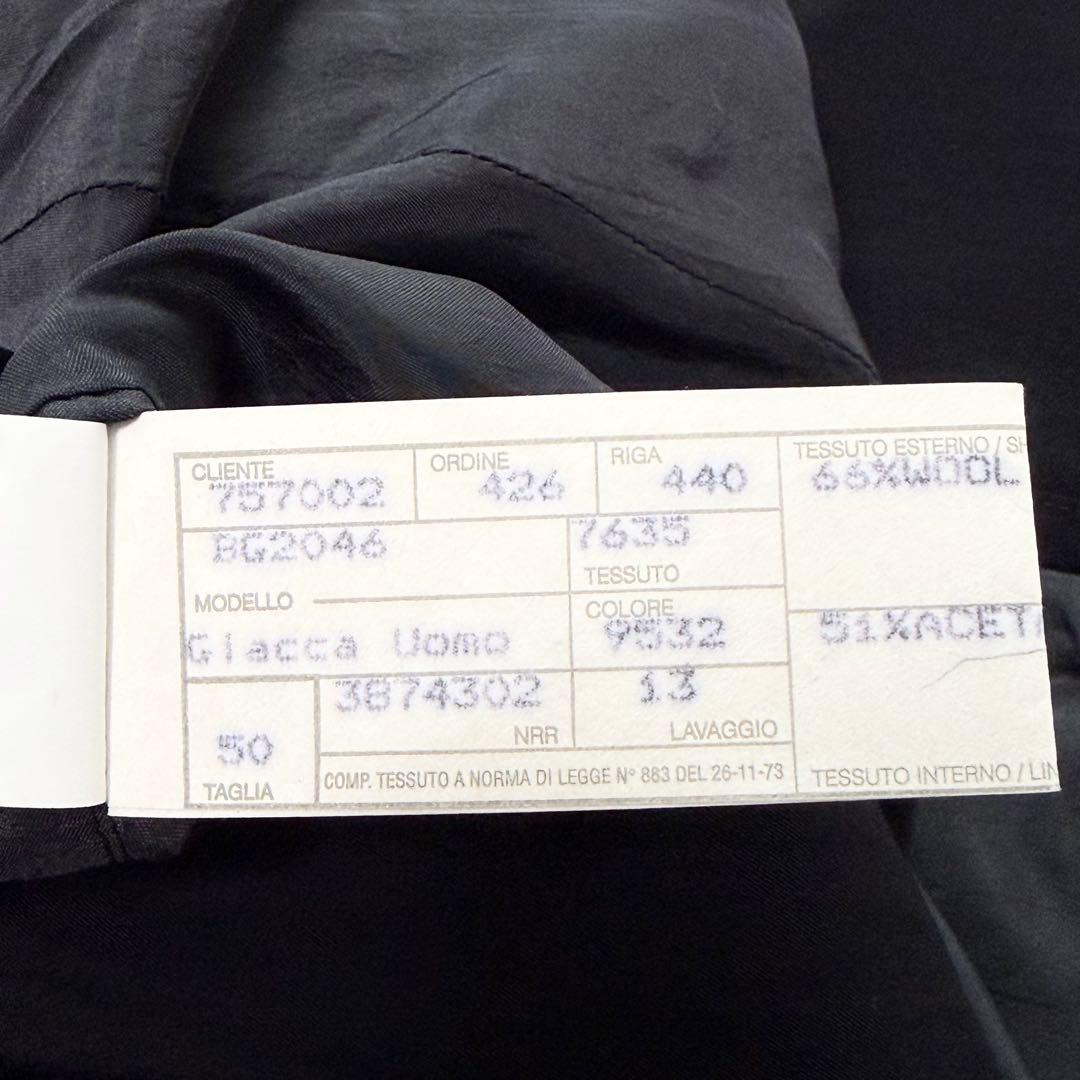 CLIENTE
757002
ORDINE
426
RIGA
440
TESSUTO ESTERNO / SH
66%WOOL
BG2046
7635
TESSUTO
MODELLO
Giacca Uomo
COLORE
9532
51%ACETA
50
TAGLIA
3874302
NRR
13
LAVAGGIO
COMP. TESSUTO A NORMA DI LEGGE N° 883 DEL 26-11-73
TESSUTO INTERNO / LIN